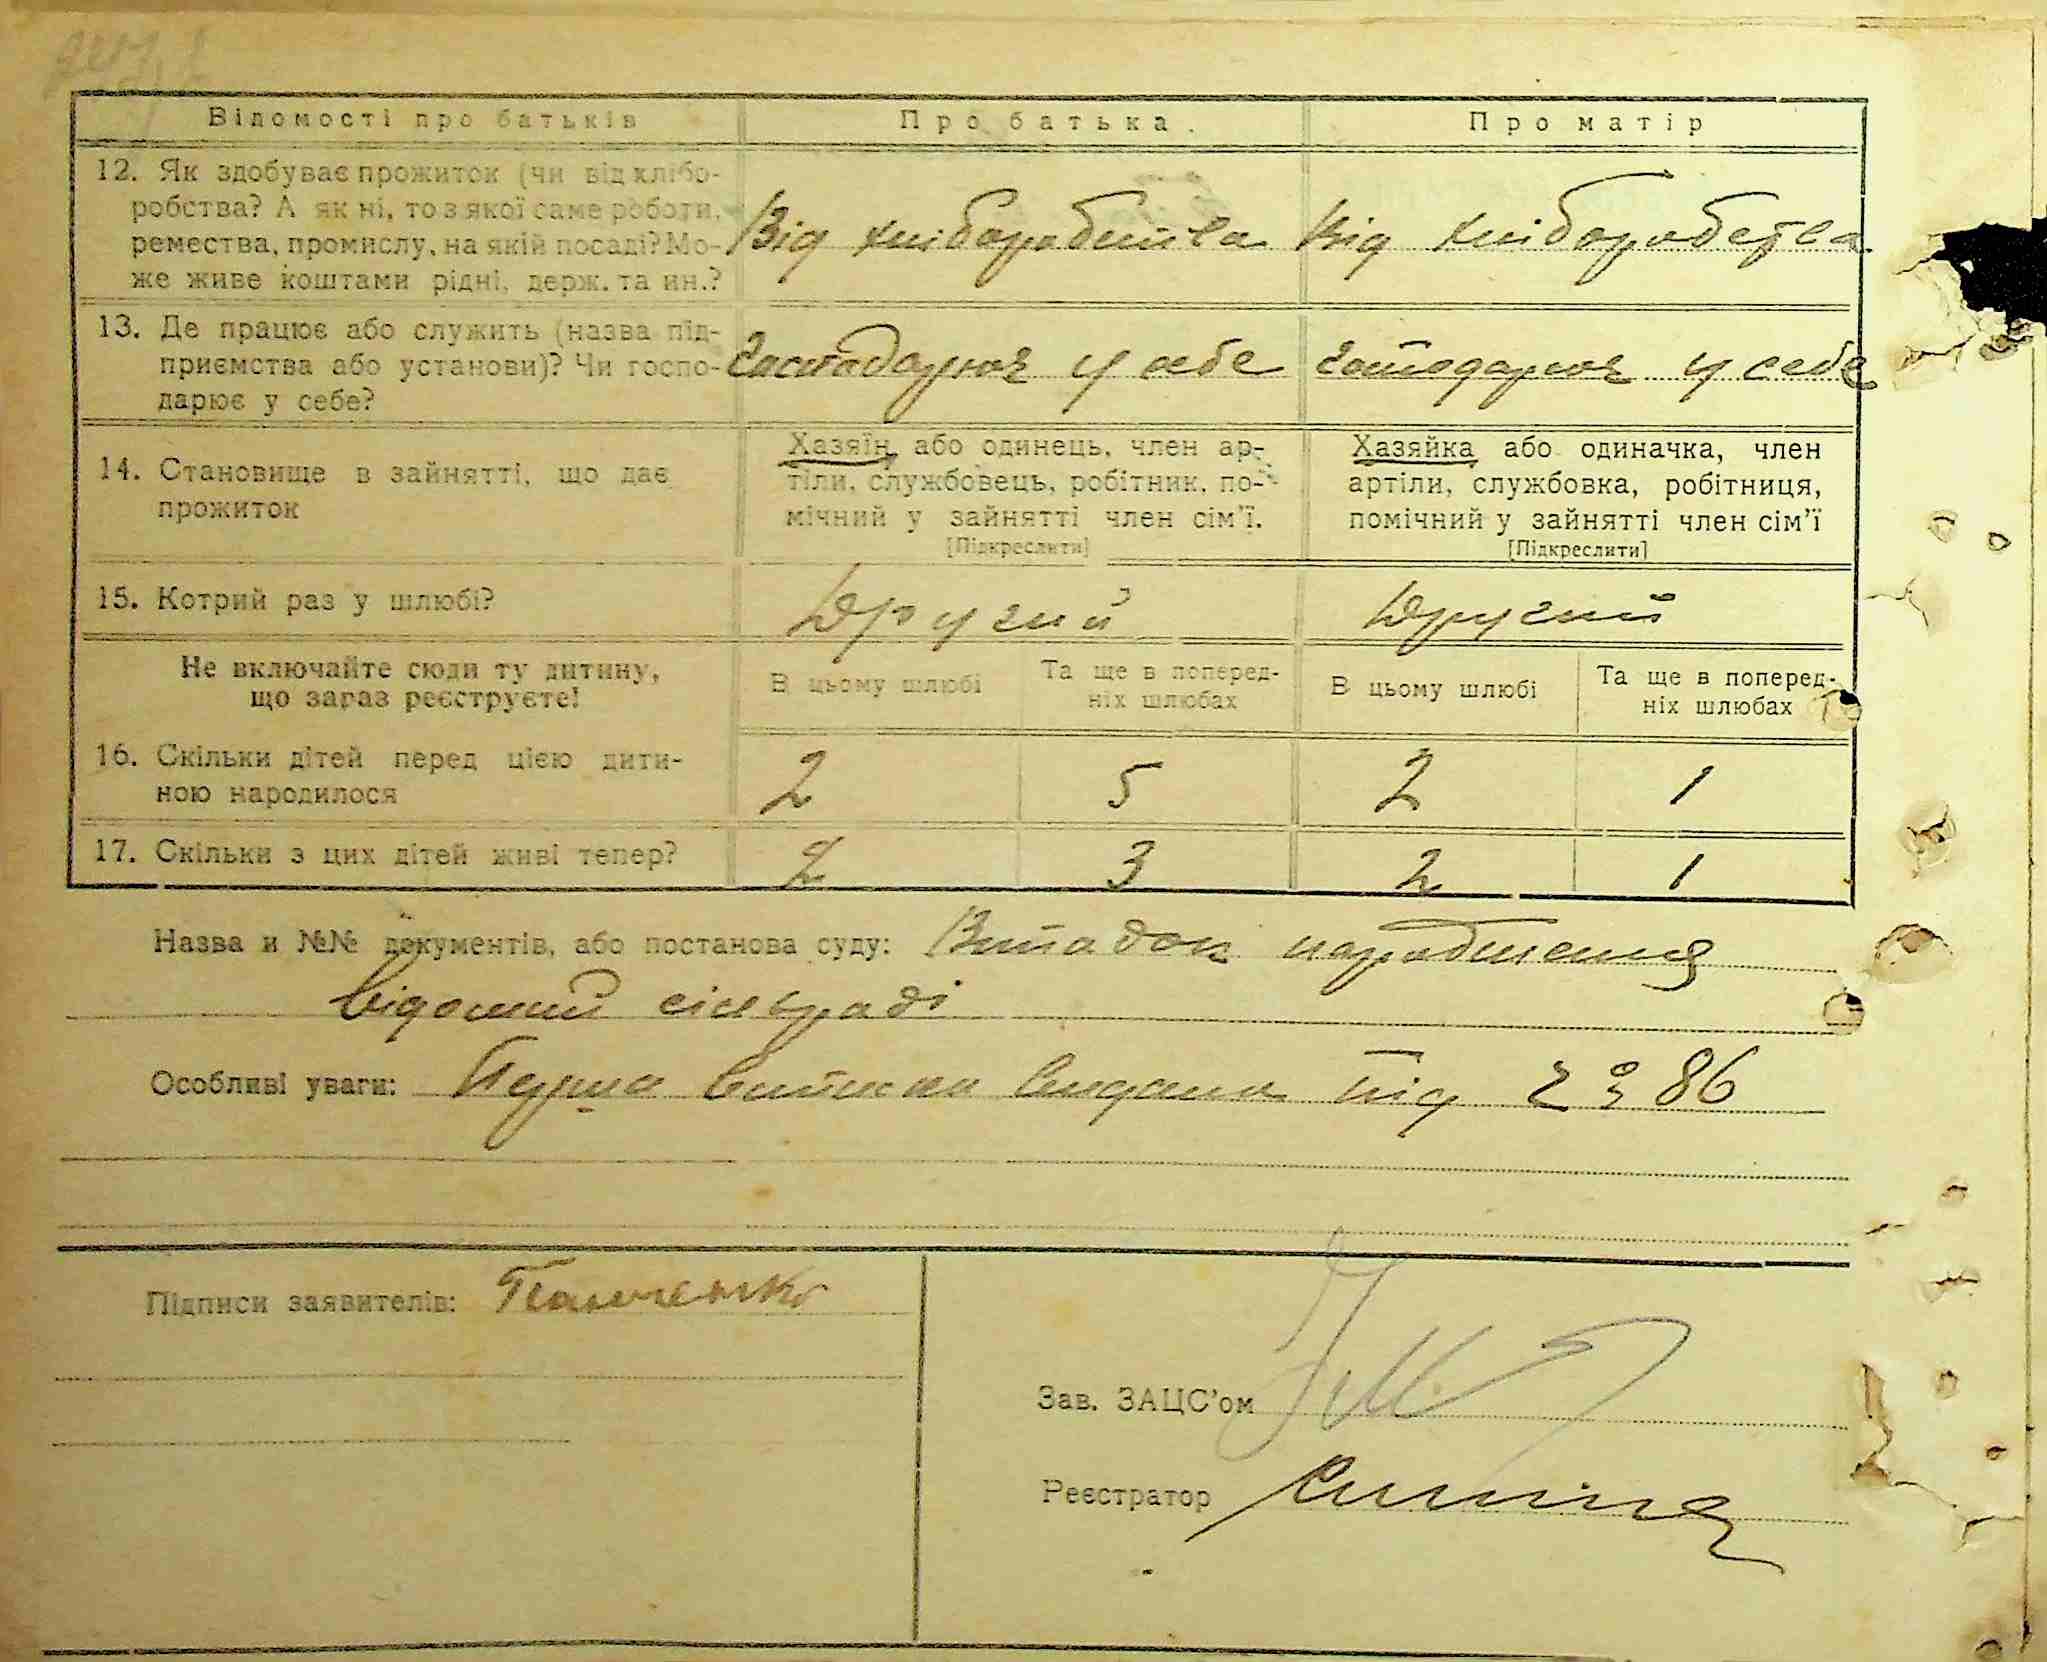 Відомості про батьків Про батька. Про матір
12. Як здобуває прожиток (чи від хлібо-
робства? А як ні, то з якої саме роботи,
ремества, промислу, на якій посаді? Мо-
же живе коштами рідні, держ. та ин.?
Від хліборобства Від хліборобства
13. Де працює або служить (назва під-
приємства або установи)? Чи госпо-
дарює у себе?
Господарює у себе Господарює у себе
14. Становище в зайнятті, що дає
прожиток
Хазяїн або одинець, член ар-
тіли, службовець, робітник, по-
мічний у зайнятті член сім'ї.
[Підкреслити]
Хазяйка або одиначка, член
артіли, службовка, робітниця,
помічний у зайнятті член сім'ї
[Підкреслити]
15. Котрий раз у шлюбі? Другий Другий
Не включайте сюди ту дитину,
що зараз реєструєте!
В цьому шлюбі
Та ще в поперед-
ніх шлюбах
В цьому шлюбі
Та ще в поперед-
ніх шлюбах
16. Скільки дітей перед цією дити-
ною народилося
2 5 2 1
17. Скільки з цих дітей живі тепер? 2 3 2 1
Назва и №№ документів, або постанова суду: Випадок народження
відомий сільраді
Особливі уваги: Перша виписка видана під 86
Підписи заявителів:
Зав. ЗАЦС'ом
Реєстратор